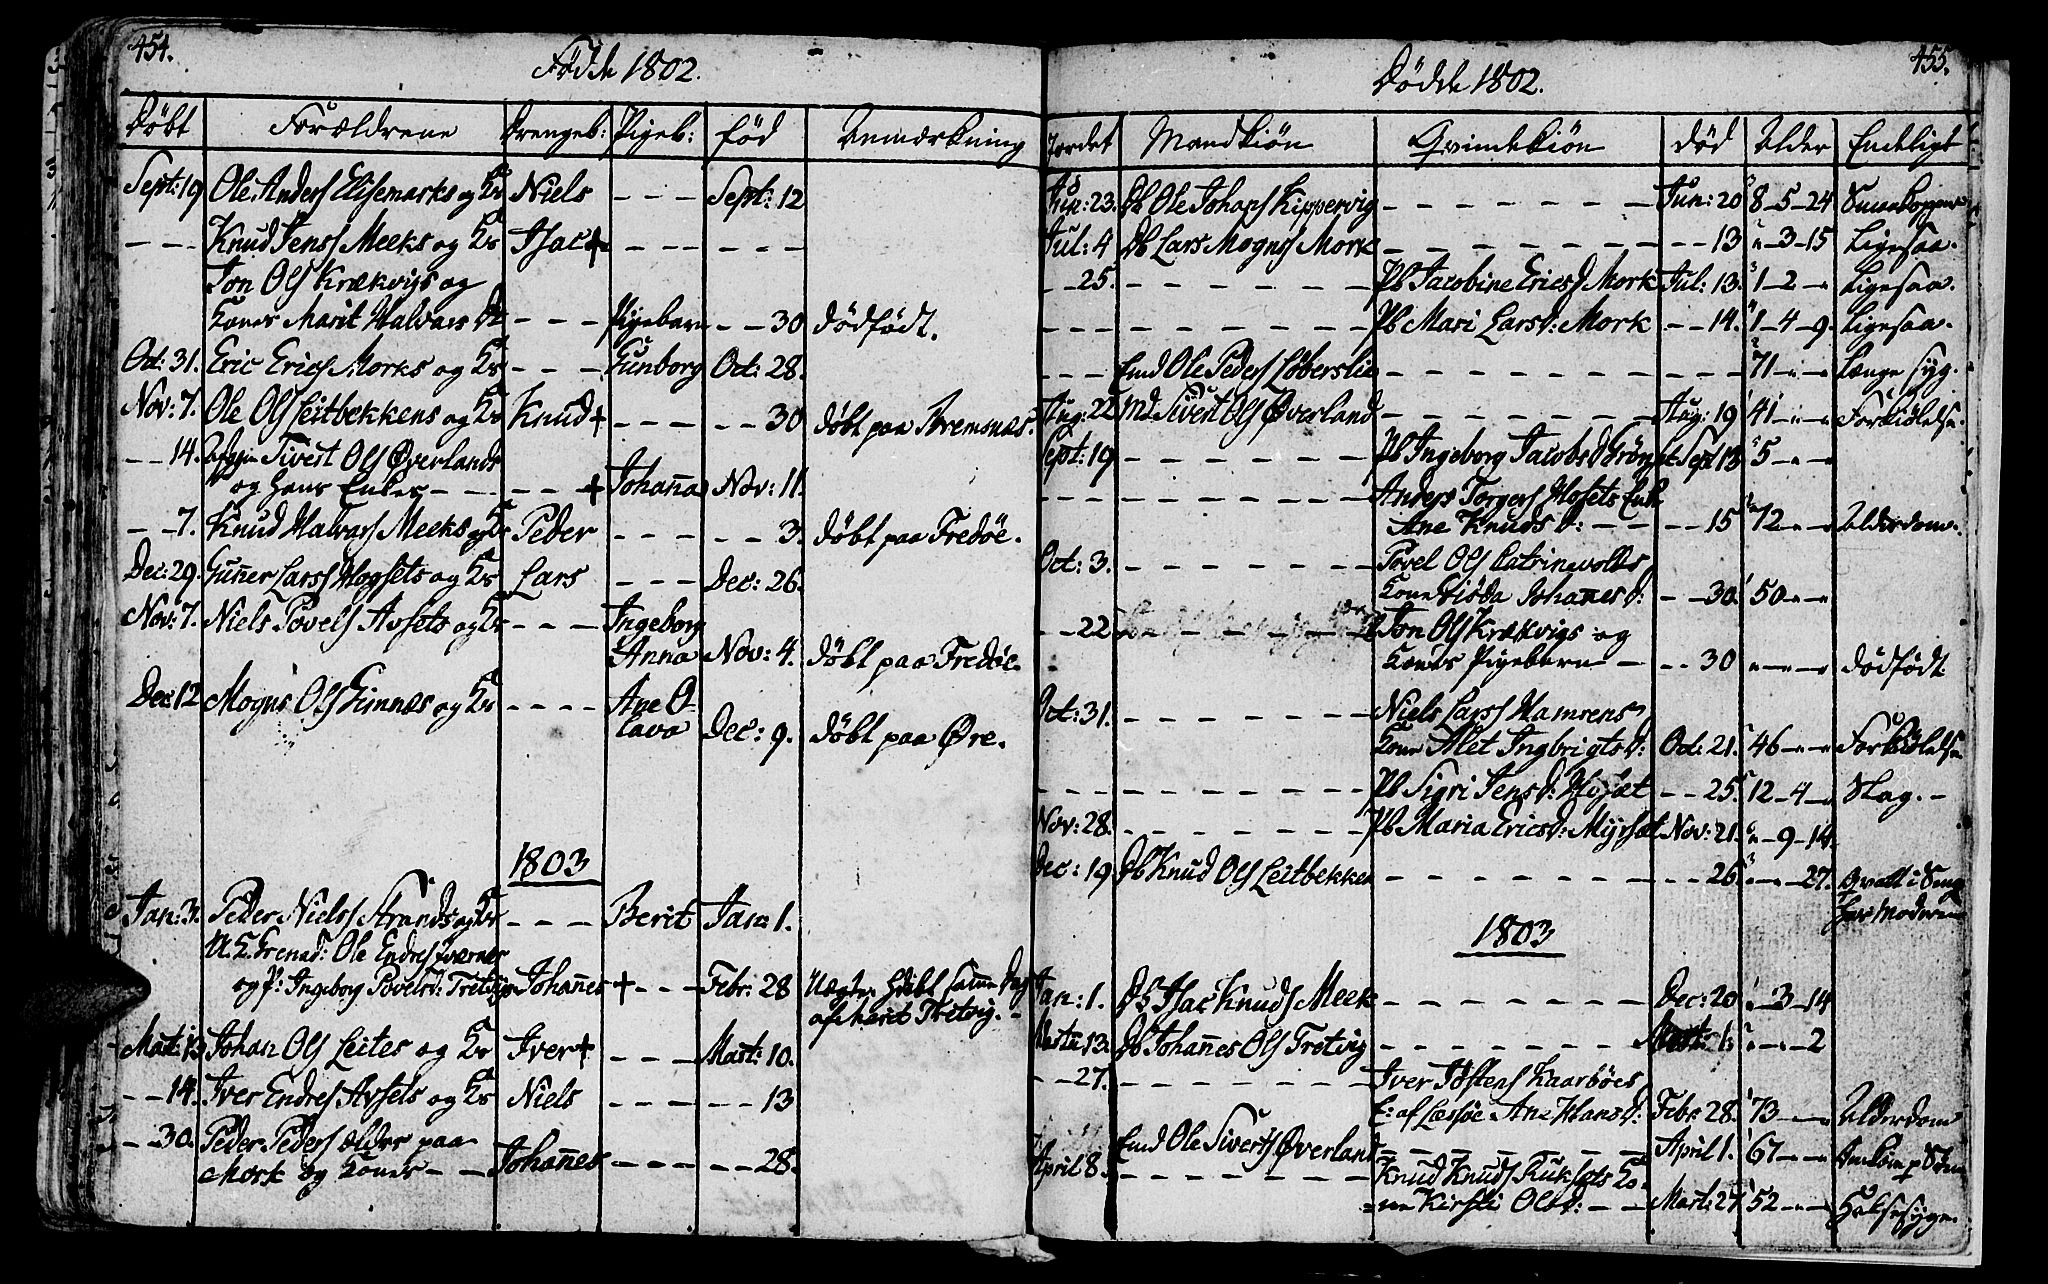 454.
Fødde 1802.
Døbt Forældrene Drengeb: Pigeb: fød Anmærkning
Sept: 19 Ole Anders Elisemarks og K. Niels - - - Sept: 12
- - - Knud Jens Meeks og K. Isac + - - - - - -
Jon Ols Krækvigs og
Kones Marit Halvars D. - - - Pigebarn - - 30 dødfødt.
Oct: 31. Eric Erics Morks og K. - - - Gunborg Oct: 28.
Nov: 7. Ole Ols Leitbekkens og K. Knud + - - - - - 30 døbt paa Bremsnæs.
- - 14. Sivert Ols Øverlands
og hans Enkes - - - - - + Johanna Nov: 11.
- - 7. Knud Halvars Meeks og K. Peder - - - - - 3. døbt paa Fredøe.
Dec: 29. Guner Lars Hogsets og K. Lars - - - Dec: 26.
Nov: 7. Niels Povels Avsets og K. - - - Ingeborg
Anna Nov: 4. døbt paa Fredøe
Dec: 12 Mogns Ols Gimnæs og K. - - - - Ane O-
lava Dec: 9. døbt paa Øre.
1803
Jan: 3. Peder Niels Strands og K. - - - Berit Jan: 1.
U. E. Grenad: Ole Endres
og P: Ingeborg Povelsd: Tretvig Johanes + - - - Febr: 28 Uægte, samme Dag
af Marit Tretvig. -
Mart: 13 Johan Ols Leites og K. Iver + - - - Mart: 10.
- - 14. Iver Endres Avsets og K. Niels - - - - - - 13
- - 30. Peder Peders ælder paa
Mork og Kones - - Johanes - - - - - - 28.
455.
Dødde 1802.
Jordet Mandkiøn Qvindekiøn død Alder Endeligt
Jun: 23. Db Ole Johans Kippervig - - - - - - - Jun: 20 8-5-24 Smaakopper
Jul: 4 Db Lars Mogns Mork - - - - - - - - - 13 "-3-15 Ligesaa.
- - 25. - - - - - - Pb Jacobine Ericsd Mork Jul: 13. 1-2-" Ligesaa.
- - - - - - - - - Pb Mari Larsd: Mork - - 14. 1-4-9. Ligesaa.
- - - Emd Ole Peders Løberslie - - - - - - - - - - 71-"-" Længe syg.
Aug: 22 Md Sivert Ols Øverland - - - - - - - Aug: 19 41-"-" Forkiølelse.
Sept: 19 - - - - - - Pb Ingeborg Jacobsd Sept 13 5-"-"
- - - - - - - - - Anders Torgers Hosets Enke
Ane Knudsd: - - - - 15 72-"-" Alderdom.
Oct: 3. - - - - - - Povel Ols Catrinevolds
Kone Johanesd: - - 30. 50-"-"
- - 22. Jon Ols Krækvigs og
Kones Pigebarn - - - 30 "-"-" dødfødt
Oct: 31. - - - - - - Niels Lars Hamrens
Kone Alet Ingbrigtsd: Oct: 21. 46-"-" Forkiølelse
- - - - - - - - - Pb Sigri Jensd: Hosæt - - 25. 12-4-" Slag. -
Nov: 28. - - - - - - Pb Maria Ericsd: Myrsæt Nov: 21. "-9-14.
Dec: 19 Db Knud Ols Leitbekken - - - - - - - - - 26. "-"-27. Qvalt i Seng
hos Moderen
1803
Jan: 1. Db Isac Knuds Meek - - - - - - - Dec: 20 "-3-14
Marti 13. Db Johannes Ols Tretvig - - - - - - - Mart: 1. "-"-2
- - 27. - - - - - - Iver Jøstens Kaarbøes
E: af Læssøe Ane Hansd: Febr: 28. 73-"-" Alderdom
Emd Ole Siverts Øverland - - - - - - - April 1. 67-"-" Omkom p Søen
April 8. - - - - - - Knud Knuds Kuksets Ko-
=ne Kirsti Olsd: - - Mart: 27 52-"-" Halsesyge.